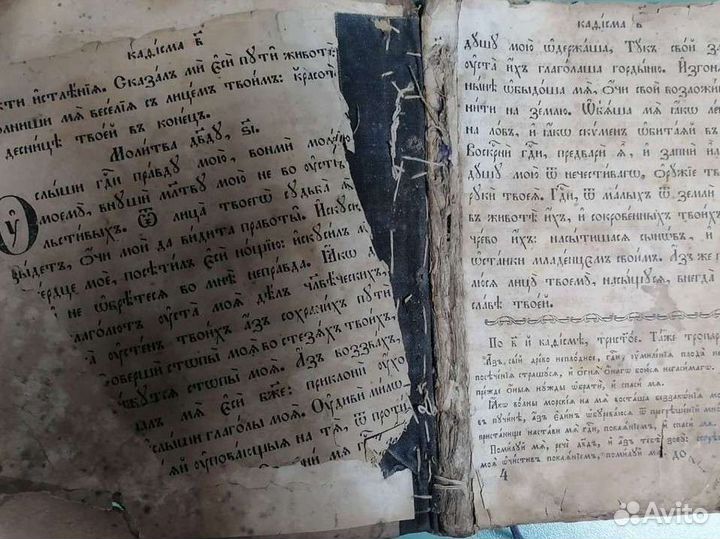 КАѲІСМА В҃
сти и҆стлѣ́нїѧ. Сказа́лъ ми є҆сѝ пꙋти̑ живота̀:
олниши мѧ весе́лїѧ съ лице́мъ твои́мъ: красота̀
десни́цѣ твое́й въ коне́цъ.
Моли́тва дв҃дꙋ, ѕ҃і.
Оу҆слы́ши гдⷭ҇и пра́вдꙋ мою̀, вонмѝ моле́нїю
моемꙋ̀, внꙋшѝ мл҃твꙋ мою̀ не во ᲂу҆стна́хъ
льсти́выхъ. Ѿ лица̀ твоегѡ̀ сꙋдьба̀
и҆зы́детъ, ѻ҆́чи моѝ да ви́дита правоты̑. И҆скꙋси́лъ
се́рдце моѐ, посѣти́лъ є҆сѝ но́щїю: и҆скꙋси́лъ мѧ
и не ѡ҆брѣ́тесѧ во мнѣ̀ непра́вда. Ꙗ҆́кѡ
глаго́лютъ ᲂу҆ста̀ моѧ̑ дѣ́лъ чл҃вѣ́ческихъ,
ᲂу҆сте́нъ твои́хъ а҆́зъ сохрани́хъ пꙋти̑
соверши̑ стѡпы̀ моѧ̑ во стезѧ́хъ твои́хъ,
жꙋтсѧ стѡпы̀ моѧ̑. А҆́зъ воззва́хъ,
шалъ мѧ є҆сѝ бж҃е: приклонѝ ᲂу҆́хо
слы́ши глаго́лы моѧ̑. Оу҆дивѝ ми́лѡ
ᲂу҆пова́ющыѧ на тѧ̀, ѿ проти
ни́ мѧ
КАѲІСМА В҃
дꙋ́шꙋ мою̀ ѡ҆держа́ша, Тꙋ́къ сво́й за
ᲂу҆ста̀ и҆́хъ глаго́лаша горды́ню. И҆згонѧ
ны́нѣ ѡ҆быдо́ша мѧ, ѻ҆́чи своѝ возложи
ни́ти на зе́млю. Ѡ҆б̾ѧ́ша мѧ ꙗ҆́кѡ ле
на ло́въ, и҆ ꙗ҆́кѡ ски́менъ ѡ҆бита́ѧй въ
Воскрⷭ҇нѝ гдⷭ҇и, предварѝ ѧ҆̀, и҆ запнѝ и҆̀мъ
дꙋ́шꙋ мою̀ ѿ нечести́вагѡ, Ѻ҆рꙋ́жїе тво
рꙋкѝ твоеѧ̀. Гдⷭ҇и, ѿ ма́лыхъ ѿ землѝ
въ животѣ̀ и҆́хъ, и҆ сокрове́нныхъ твои́хъ
чре́во и҆́хъ: насы́тишасѧ сынѡ́въ, и҆
ѡ҆ста́нки младе́нцємъ свои̑мъ. А҆́зъ же
люсѧ лицꙋ̀ твоемꙋ̀, насы́щꙋсѧ, внегда̀
сла́вѣ твое́й.
По в҃ й каѳі́смѣ, трист҃о́е. Та́же тропар
А҆́зъ сы́й дре́во непло́дное, гдⷭ҇и, ᲂу҆миле́нїѧ плода̀ не
посѣче́нїѧ страшꙋ́сѧ, и҆ ѻ҆гнѧ̀ ѻ҆́нагѡ бою́сѧ негаси́магѡ.
пре́жде ѻ҆́ныѧ нꙋ́жды ѡ҆братѝ, и҆ сп҃сѝ мѧ.
Ꙗ҆́кѡ вѡ́лны морскі̑ѧ на мѧ̀ воста́ша беззакѡ́нїѧ моѧ̑
въ пꙋчи́нѣ, а҆́зъ є҆ди́нъ ѡ҆бꙋрева́юсѧ ѿ прегрѣше́нїй мно
приста́нище наста́ви мѧ гдⷭ҇и, покаѧ́нїемъ, и҆ сп҃сѝ мѧ.
Поми́лꙋй мѧ, речѐ дв҃дъ, и҆ а҆́зъ тебѣ̀ зовꙋ̀:
моѧ̑ ѡ҆чи́стивъ покаѧ́нїемъ, поми́лꙋй мѧ
до
4
Avito